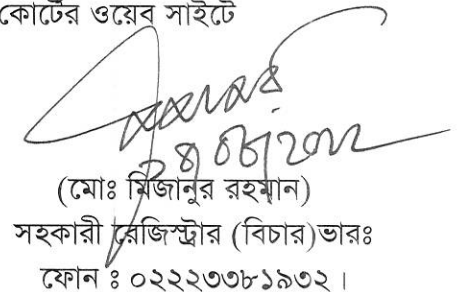 কোর্টের ওয়েব সাইটে
(মোঃ মিজানুর রহমান)
সহকারী রেজিস্ট্রার (বিচার)ভারঃ
ফোন ঃ ০২২২৩৩৮১৯৩২।